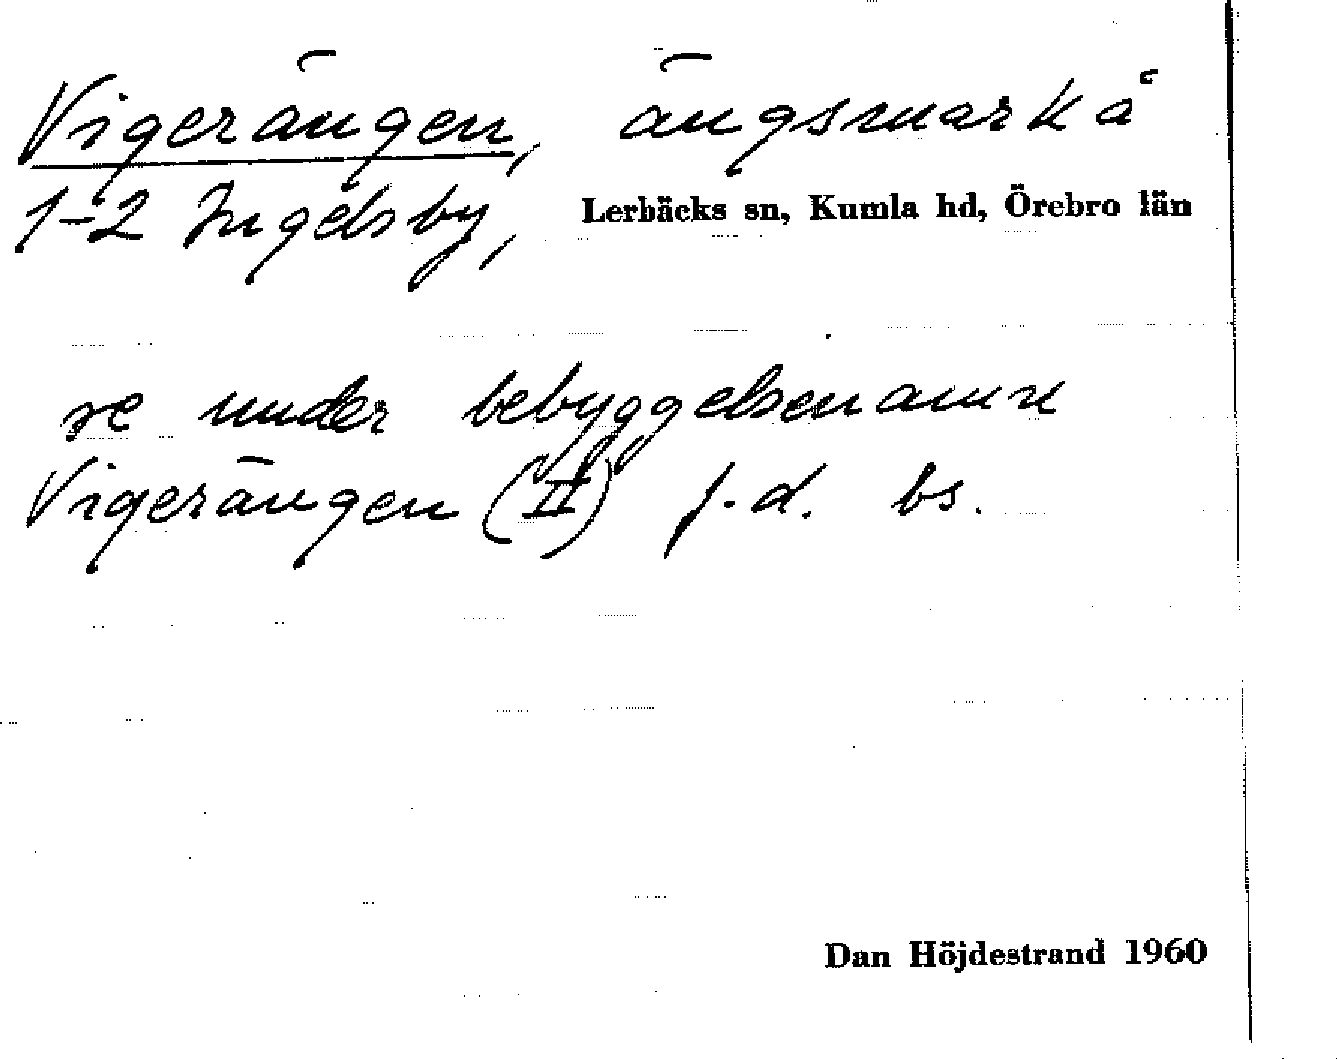 Vigerängen, ängsmark å
1-2 Ingelsby, Lerbäcks sn, Kumla hd, Örebro län
se under bebyggelsenamn
Vigerängen (II) f.d. bs.
Dan Höjdestrand 1960